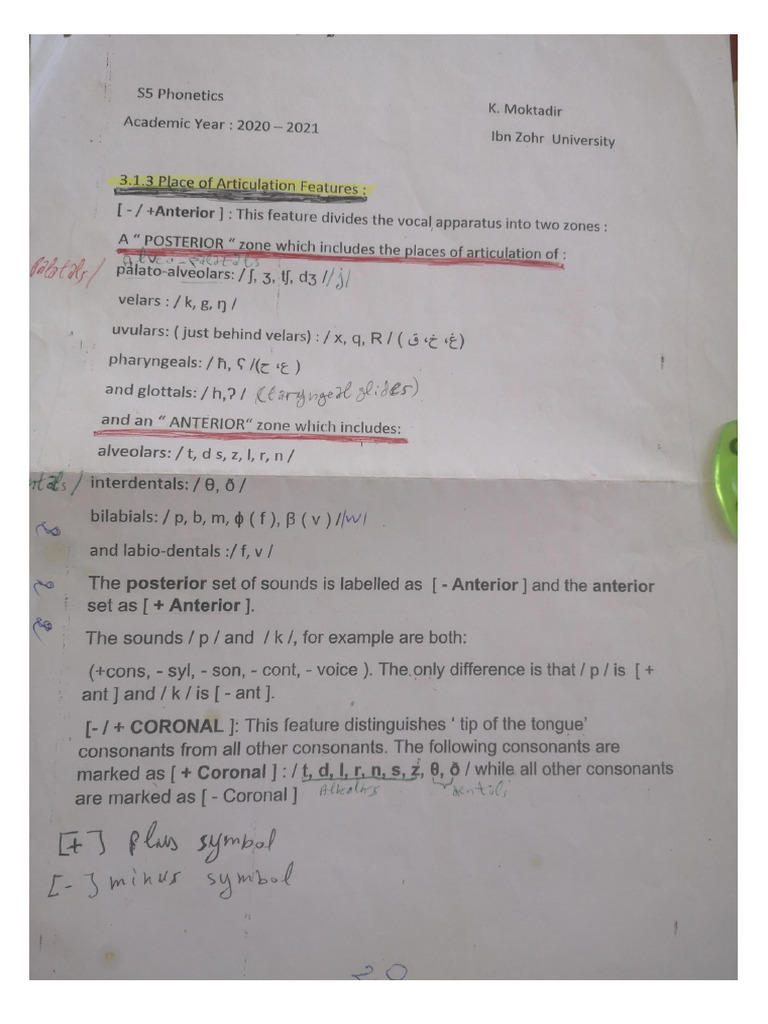 S5 Phonetics
K. Moktadir
Academic Year : 2020 – 2021
Ibn Zohr University
3.1.3 Place of Articulation Features :
[ - / +Anterior ] : This feature divides the vocal apparatus into two zones :
A “ POSTERIOR “ zone which includes the places of articulation of :
alveo-palatals
palatals/ palato-alveolars: / ʃ, ʒ, tʃ, dʒ / /j/
velars : / k, g, ŋ /
uvulars: ( just behind velars) : / x, q, R / ( غ، خ، ق)
pharyngeals: / ħ, ʕ /(ع، ح )
and glottals: / h,ʔ / (laryngeal glides)
and an “ ANTERIOR“ zone which includes:
alveolars: / t, d s, z, l, r, n /
interdentals: / θ, ð /
bilabials: / p, b, m, ɸ ( f ), β ( v ) / /w/
and labio-dentals :/ f, v /
The posterior set of sounds is labelled as [ - Anterior ] and the anterior
set as [ + Anterior ].
The sounds / p / and / k /, for example are both:
(+cons, - syl, - son, - cont, - voice ). The only difference is that / p / is [ +
ant ] and / k / is [ - ant ].
[- / + CORONAL ]: This feature distinguishes ‘ tip of the tongue’
consonants from all other consonants. The following consonants are
marked as [ + Coronal ] : / t, d, l, r, n, s, z, θ, ð / while all other consonants
are marked as [ - Coronal ]
Alveolars dentals
[+] plus symbol
[-] minus symbol
20